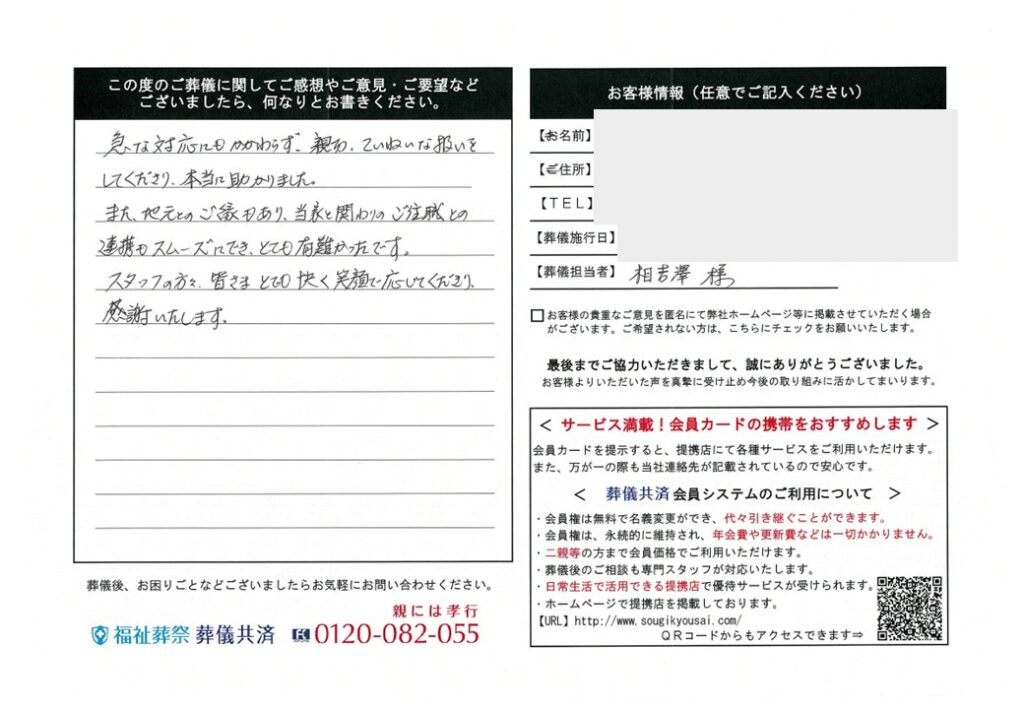 この度のご葬儀に関してご感想やご意見・ご要望など
ございましたら、何なりとお書きください。
急な対応にもかかわらず、親切、ていねいな扱いを
してくださり、本当に助かりました。
また、地元とのご縁もあり、当家と関わりのご住職との
連携もスムーズにでき、とても有難かったです。
スタッフの方々、皆さまとても快く笑顔で応じてくださり、
感謝いたします。
葬儀後、お困りごとなどございましたらお気軽にお問い合わせください。
親には孝行
福祉葬祭 葬儀共済 0120-082-055
お客様情報（任意でご記入ください）
【お名前】
【ご住所】
【ＴＥＬ】
【葬儀施行日】
【葬儀担当者】 相吉澤 様
お客様の貴重なご意見を匿名にて弊社ホームページ等に掲載させていただく場合
がございます。ご希望されない方は、こちらにチェックをお願いいたします。
最後までご協力いただきまして、誠にありがとうございました。
お客様よりいただいた声を真摯に受け止め今後の取り組みに活かしてまいります。
＜ サービス満載！会員カードの携帯をおすすめします ＞
会員カードを提示すると、提携店にて各種サービスをご利用いただけます。
また、万が一の際も当社連絡先が記載されているので安心です。
＜ 葬儀共済 会員システムのご利用について ＞
・会員権は無料で名義変更ができ、代々引き継ぐことができます。
・会員権は、永続的に維持され、年会費や更新費などは一切かかりません。
・二親等の方まで会員価格でご利用いただけます。
・葬儀後のご相談も専門スタッフが対応いたします。
・日常生活で活用できる提携店で優待サービスが受けられます。
・ホームページで提携店を掲載しております。
【URL】http://www.sougikyousai.com/
ＱＲコードからもアクセスできます⇒